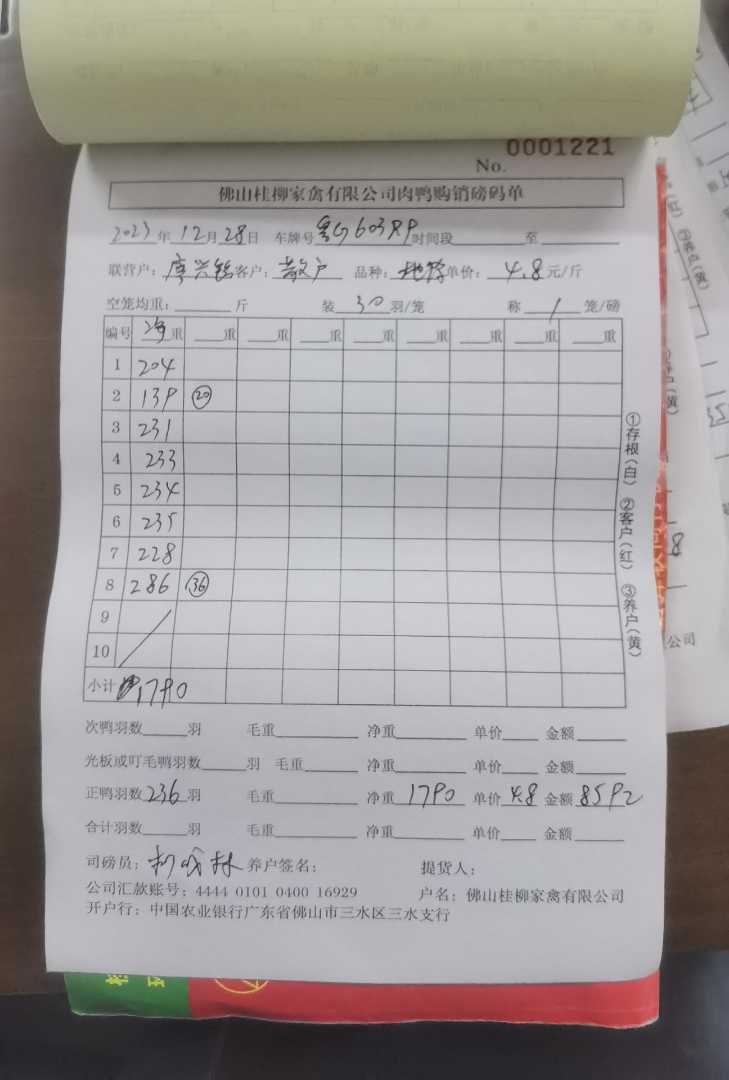 No. 0001221
佛山桂柳家禽有限公司肉鸭购销磅码单
2023年12月28日 车牌号 粤G603RP 时间段 至
联营户: 客户: 散户 品种: 单价: 4.8元/斤
空笼均重: 斤 装30羽/笼 称1笼/磅
编号 净重 重 重 重 重 重 重 重 重
1 204
2 139 20
3 231
4 233
5 234
6 235
7 228
8 286 36
9
10
小计 1790
①存根(白) ②客户(红) ③养户(黄)
次鸭羽数 羽 毛重 净重 单价 金额
光板或叮毛鸭羽数 羽 毛重 净重 单价 金额
正鸭羽数236羽 毛重 净重1790 单价4.8 金额8592
合计羽数 羽 毛重 净重 单价 金额
司磅员: 养户签名: 提货人:
公司汇款账号: 4444 0101 0400 16929 户名: 佛山桂柳家禽有限公司
开户行: 中国农业银行广东省佛山市三水区三水支行